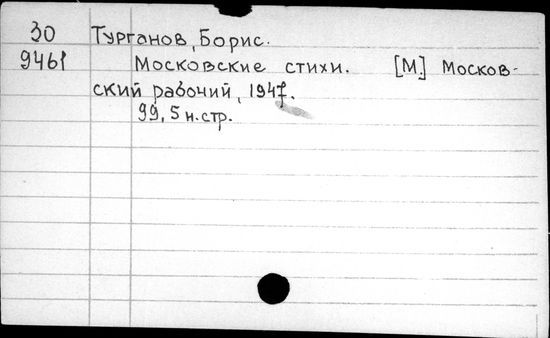 30 Турганов, Борис.
9461 Московские стихи. [М.] Москов-
ский рабочий, 1947.
99, 5 н. стр.